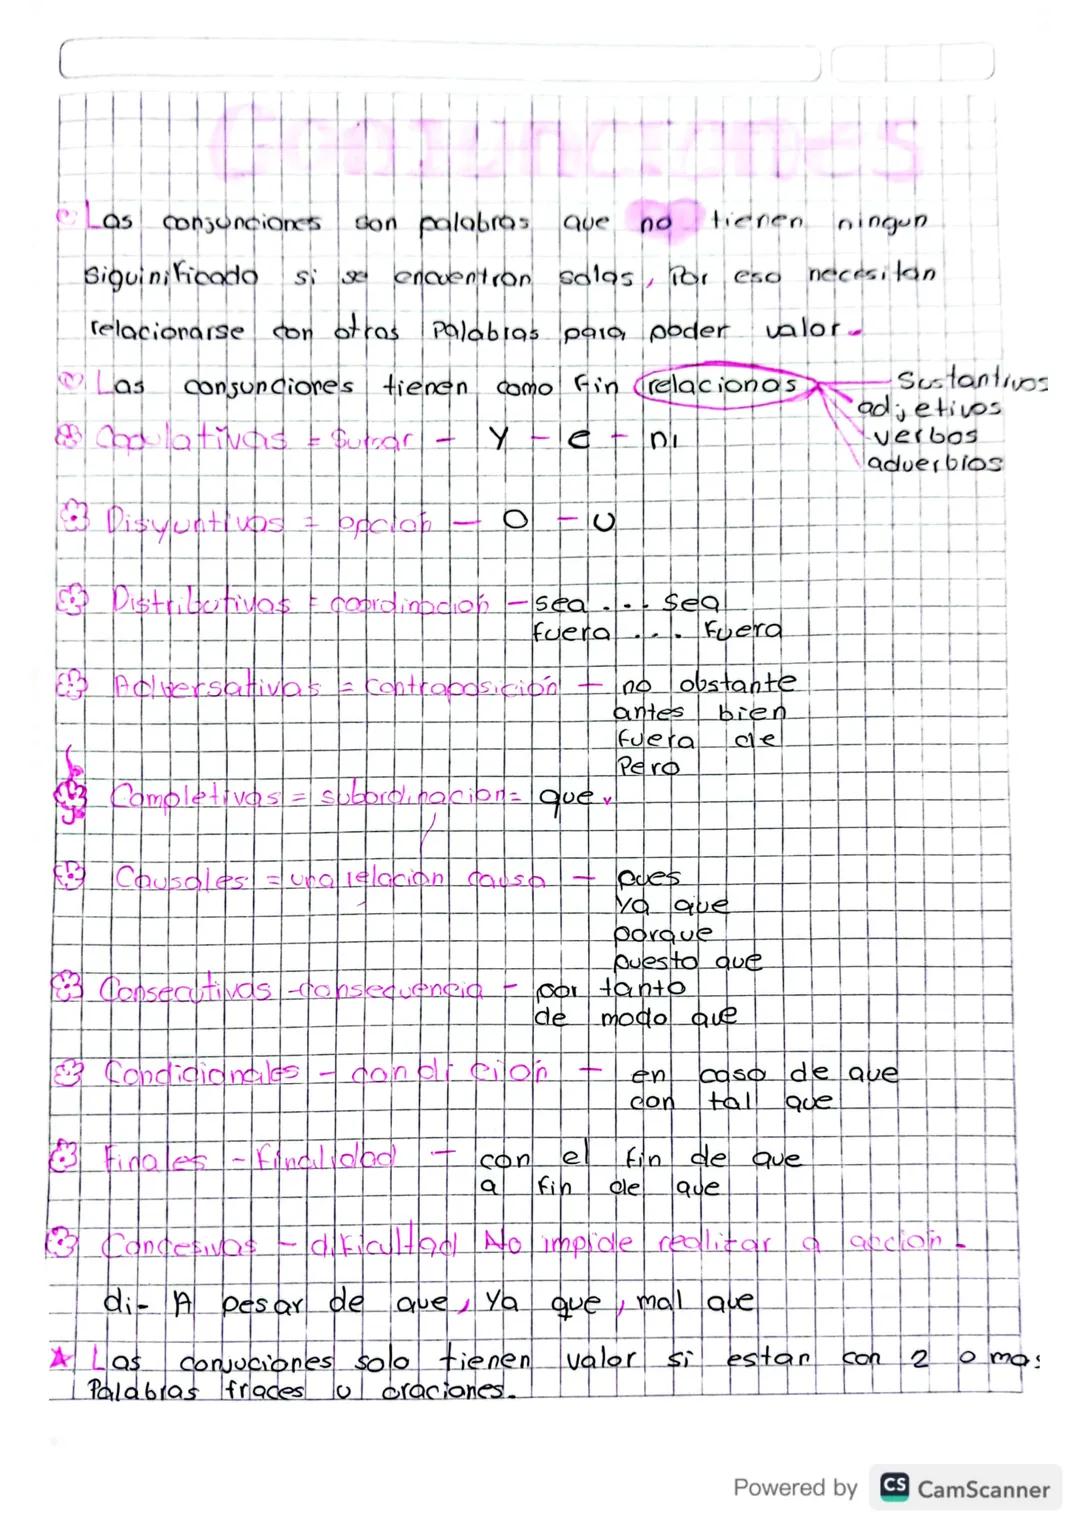 Conjunciones
Las conjunciones son palabras que no tienen ningun
siguinificado si se encuentran solas, Por eso necesitan
relacionarse con otras Palabras para poder valor.
Las conjunciones tienen como fin relacionas
Sustantivos
adjetivos
verbos
adverbios
Copulativas = Sumar - Y - e - ni
Disyuntivas = opcion - O - U
Distributivas = coordinacion - sea ... sea
fuera ... Fuera
Adversativas = contraposición - no obstante
antes bien
fuera de
Pero
Completivas = subordinacion = que
Causales = una relacion causa - pues
ya que
porque
puesto que
Consecutivas - consecuencia - por tanto
de modo que
Condicionales - condicion - en caso de que
con tal que
Finales - Finalidad - con el fin de que
a fin de que
Concesivas - dificultad No impide realizar a accion.
di- A pesar de que, ya que, mal que
Las conjuciones solo tienen valor si estan con 2 o mas
Palabras fraces u oraciones.
Powered by CS CamScanner